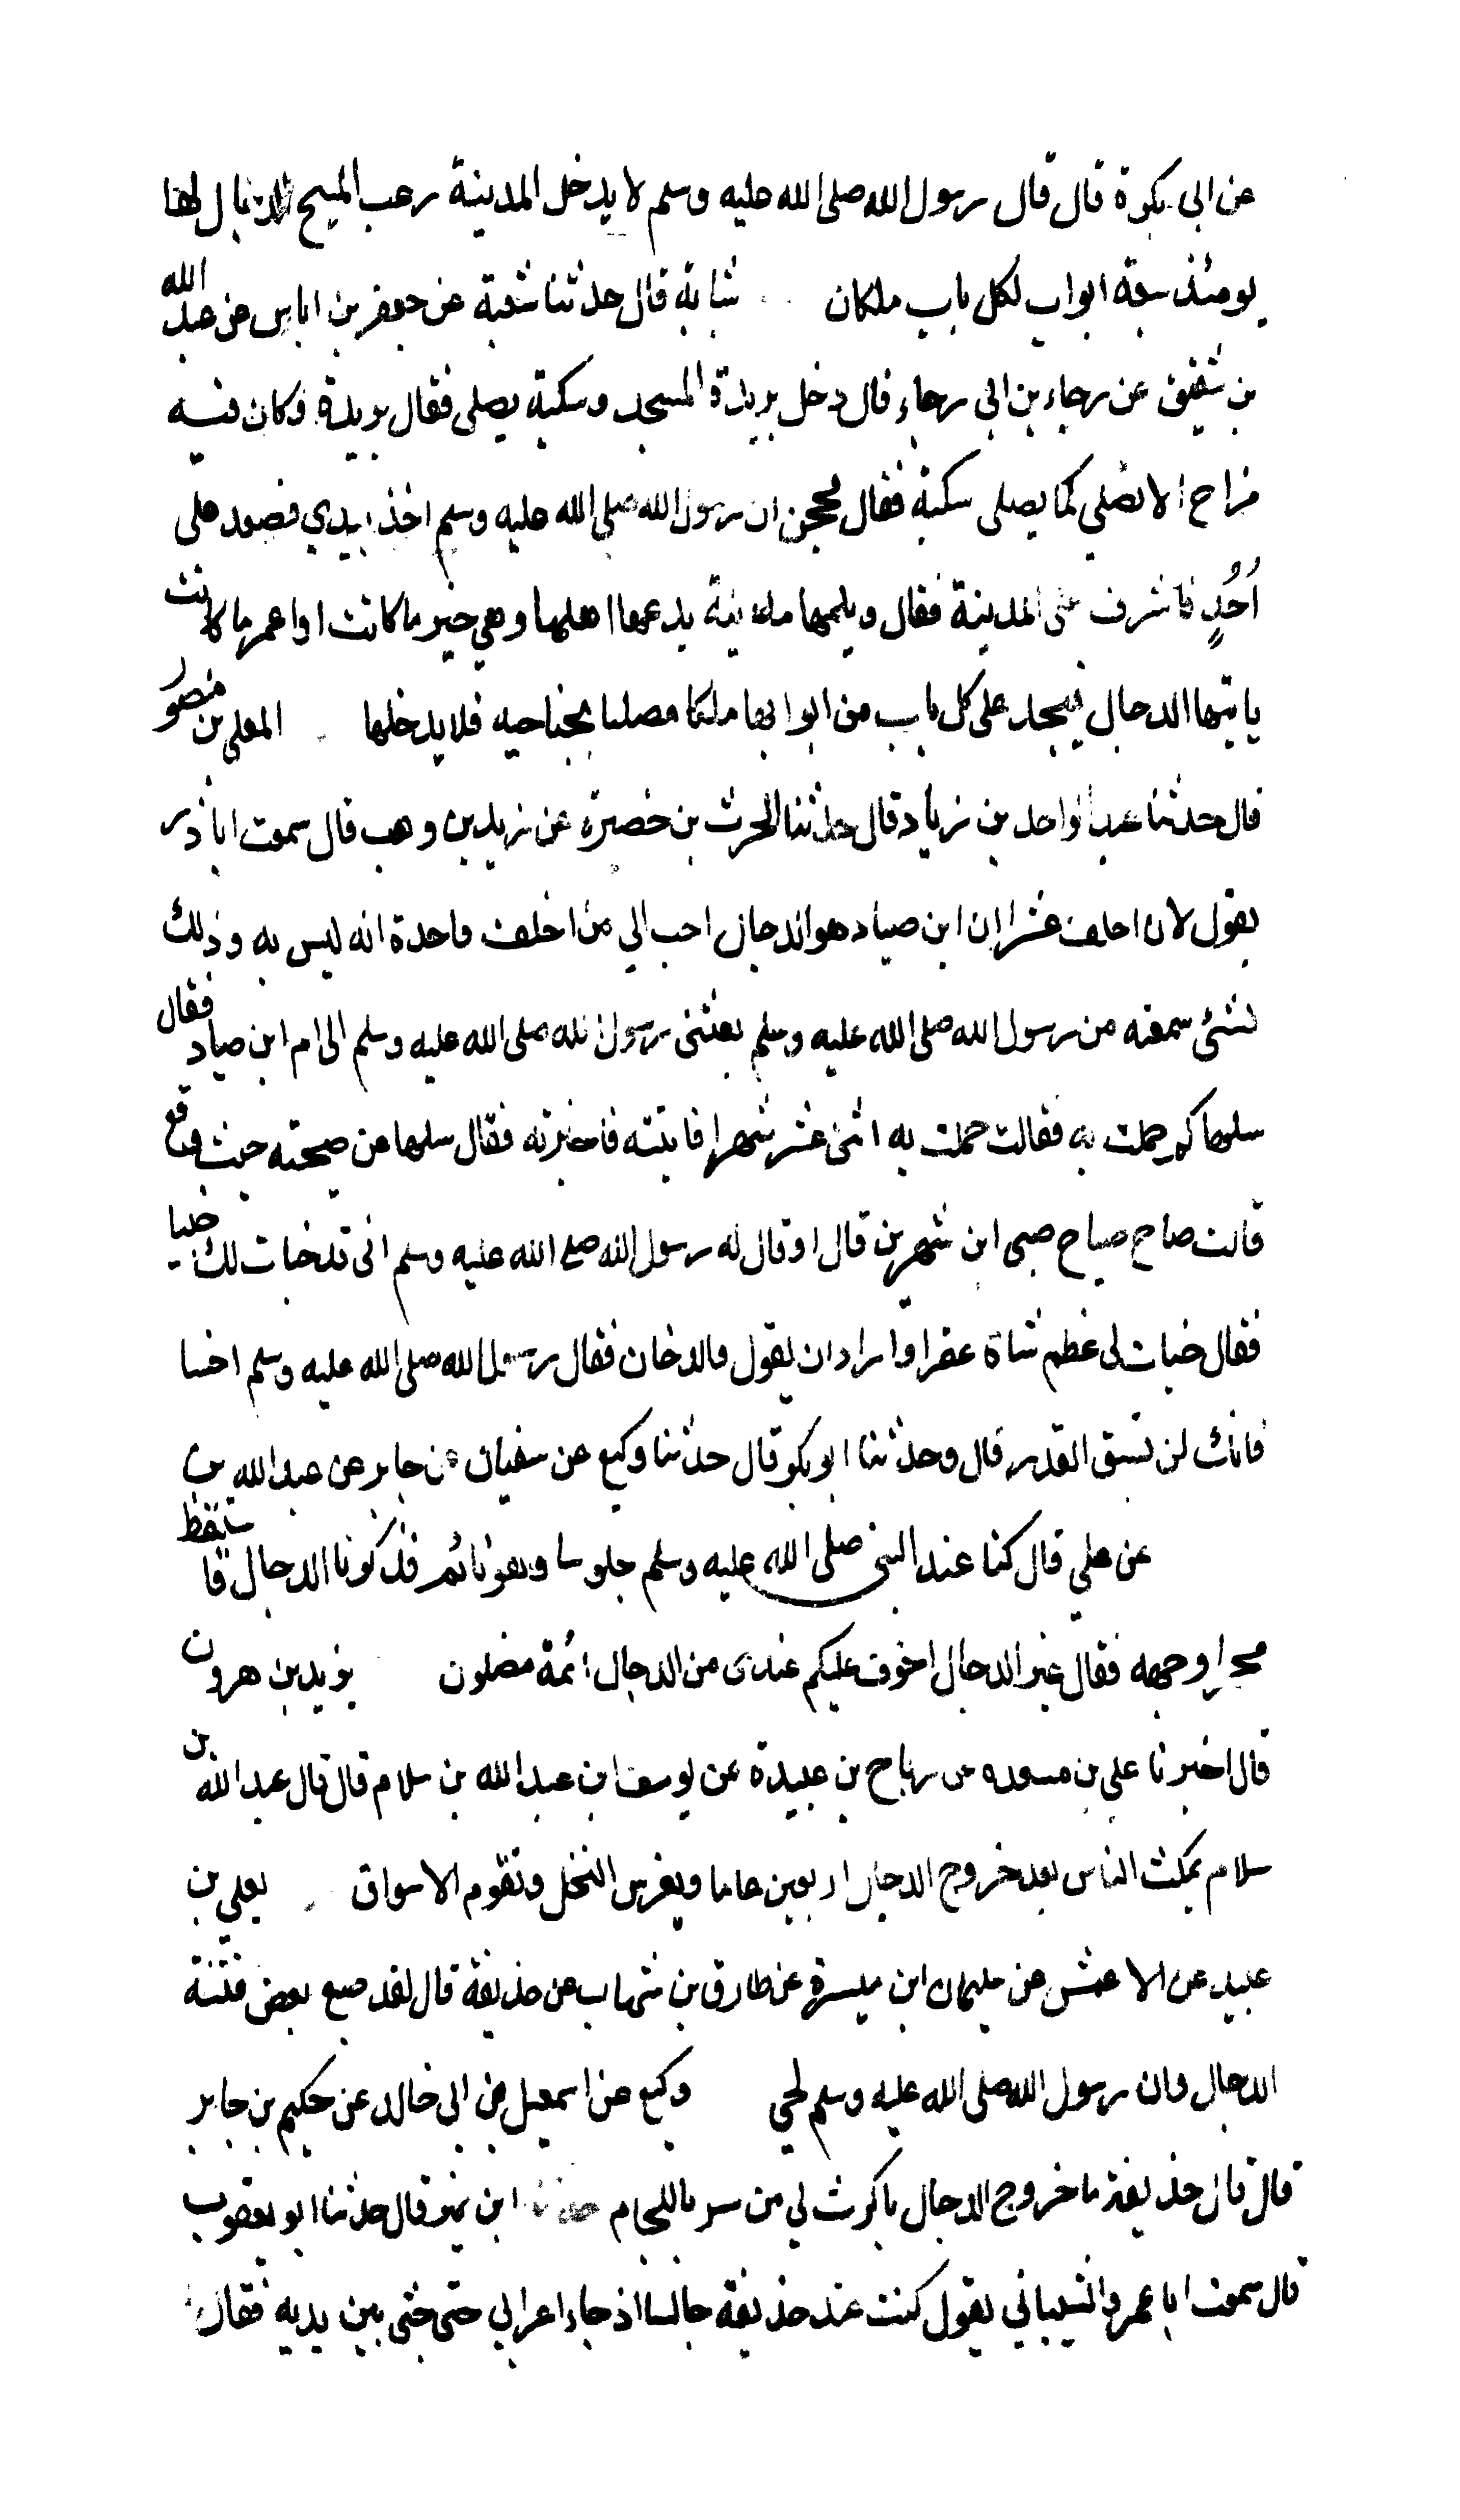 عن ابى بكرة قال قال رسول الله صلى الله عليه وسلم لا يدخل المدينة رعب المسيح الدجال لها
يومئذ سبعة ابواب لكل باب ملكان شبابة قال حدثنا شعبة عن جعفر بن اياس عن عبد الله
بن شقيق عن رجاء بن ابى رجاء قال دخل بريدة المسجد وسكبة يصلى فقال بريدة وكان فيه
مزاح الا تصلي كما يصلى سكبة فقال محجن ان رسول الله صلى الله عليه وسلم اخذ بيدي فصعد على
أُحُدٍ فاشرف على المدينة فقال ويلمها مدينة يدعها اهلها وهي خير ما كانت او اعمر ما كانت
ياتيها الدجال فيجد على كل باب من ابوابها ملكا مصلتا بجناحيه فلا يدخلها المعلى بن منصور
قال حدثنا عبد الواحد بن زياد قال حدثنا الحرث بن حصيرة عن زيد بن وهب قال سمعت اباذر
يقول لان احلف عشرا ان ابن صياد هو الدجال احب الي من احلف واحدة انه ليس به وذلك
لشئ سمعته من رسول الله صلى الله عليه وسلم بعثنى رسول الله صلى الله عليه وسلم الى ام ابن صياد فقال
سلها كم حملت به فقالت حملت به اثنى عشر شهرا فاتيته فاخبرته فقال سلها عن صيحته حيث وقع
قالت صاح صياح صبى ابن شهرين قال او قال له رسول الله صلى الله عليه وسلم انى قد خبات لك خبيا
فقال خبات لى عظم شاة عفرا واراد ان يقول والدخان فقال رسول الله صلى الله عليه وسلم اخسا
فانك لن تسبق القدر قال وحدثنا ابو بكر قال حدثنا وكيع عن سفيان عن جابر عن عبد الله بن
عن علي قال كنا عند النبى صلى الله عليه وسلم جلوسا وهو نائم فذكرنا الدجال فاستيقظ
محمرا وجهه فقال غير الدجال اخوف عليكم عندى من الدجال ائمة مضلون يزيد بن هرون
قال اخبرنا علي بن مسعده عن رباح بن عبيدة عن يوسف بن عبد الله بن سلام قال قال عبد الله بن
سلام يمكث الناس بعد خروج الدجال اربعين عاما ويغرس النخل وتقوم الاسواق يعلي بن
عبيد عن الاعمش عن سليمان ابن ميسرة عن طارق بن شهاب عن حذيفة قال لقد صنع بعض فتنة
الدجال وان رسول الله صلى الله عليه وسلم لحي وكيع عن اسمعيل بن ابى خالد عن حكيم بن جابر
قال قال حذيفة ما خروج الدجال باكرث لي من سر باللجام حدثنا ابن نمير قال حدثنا ابو يعقوب
قال سمعت ابا عمرو الشيباني يقول كنت عند حذيفة جالسا اذ جاء اعرابي حتى جثى بين يديه فقال